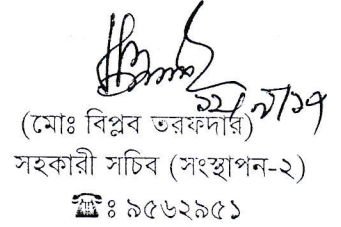 (মোঃ বিপ্লব তরফদার)
সহকারী সচিব (সংস্থাপন-২)
☎ঃ ৯৫৬২৯৫১